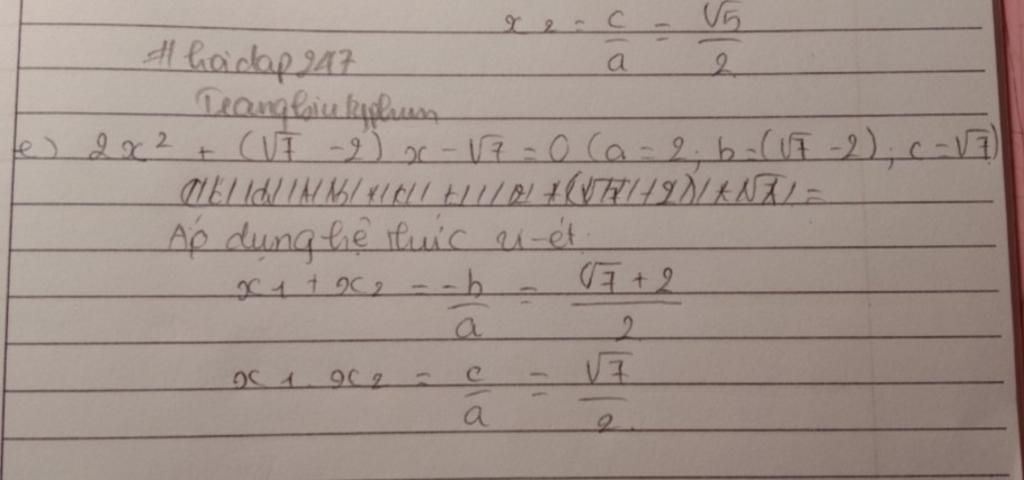 x2 = c/a = √5/2
#hoidap247
e) 2x² + (√7 - 2) x - √7 = 0 (a = 2; b = (√7 - 2); c = √7)
Áp dụng hệ thức vi-ét.
x1 + x2 = -b/a = √7 + 2/2
x1 . x2 = c/a = √7/2